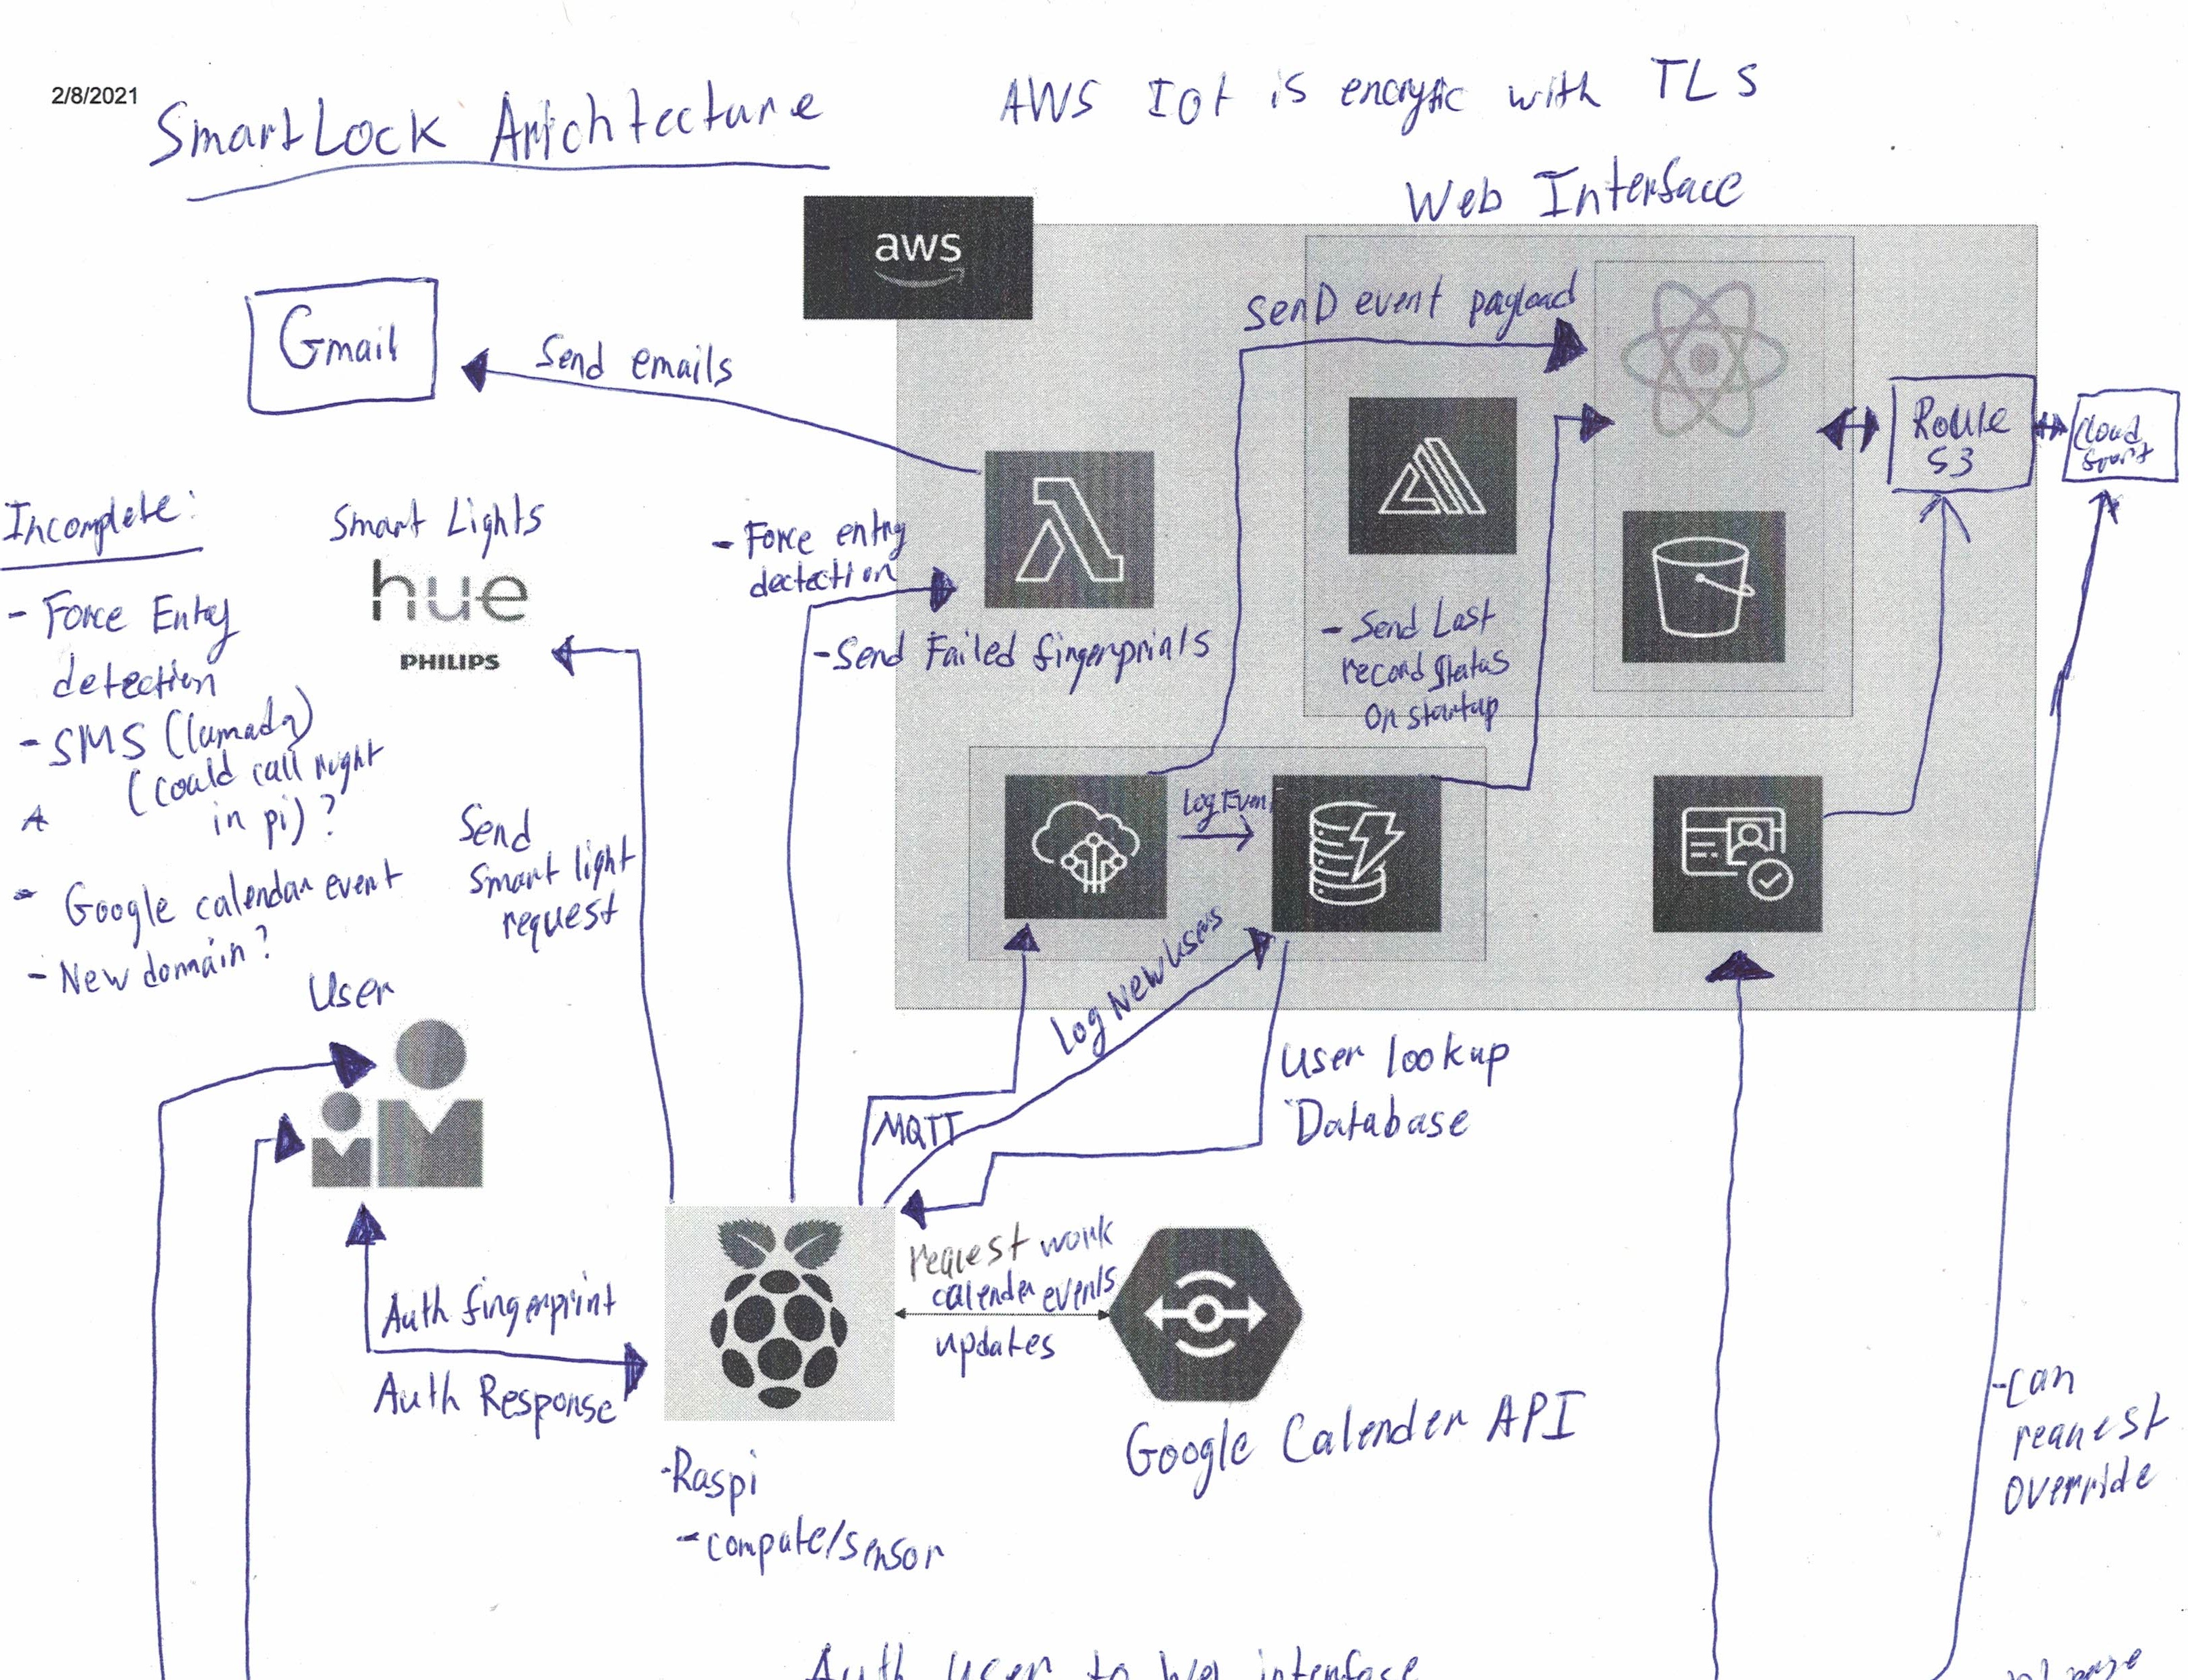 2/8/2021
SmartLock Arichtecture
AWS IoT is encryptic with TLS
Web Interface
aws
Gmail
Send emails
SenD event payload
Route
53
Cloud
front
Incomplete:
- Force Entry
detection
- SMS (lumada)
(could call right
in pi)?
- Google calendar event
- New domain?
Smart Lights
hue
PHILIPS
- Force entry
dectection
- Send Failed fingerprints
- Send Last
record status
On startup
Log Even
Send
Smart light
request
User
Log New Users
MQTT
User lookup
Database
Auth fingerprint
Auth Response
request work
calender events
updates
Google Calender API
- Raspi
- compute/sensor
- Can
request
override
Auth user to